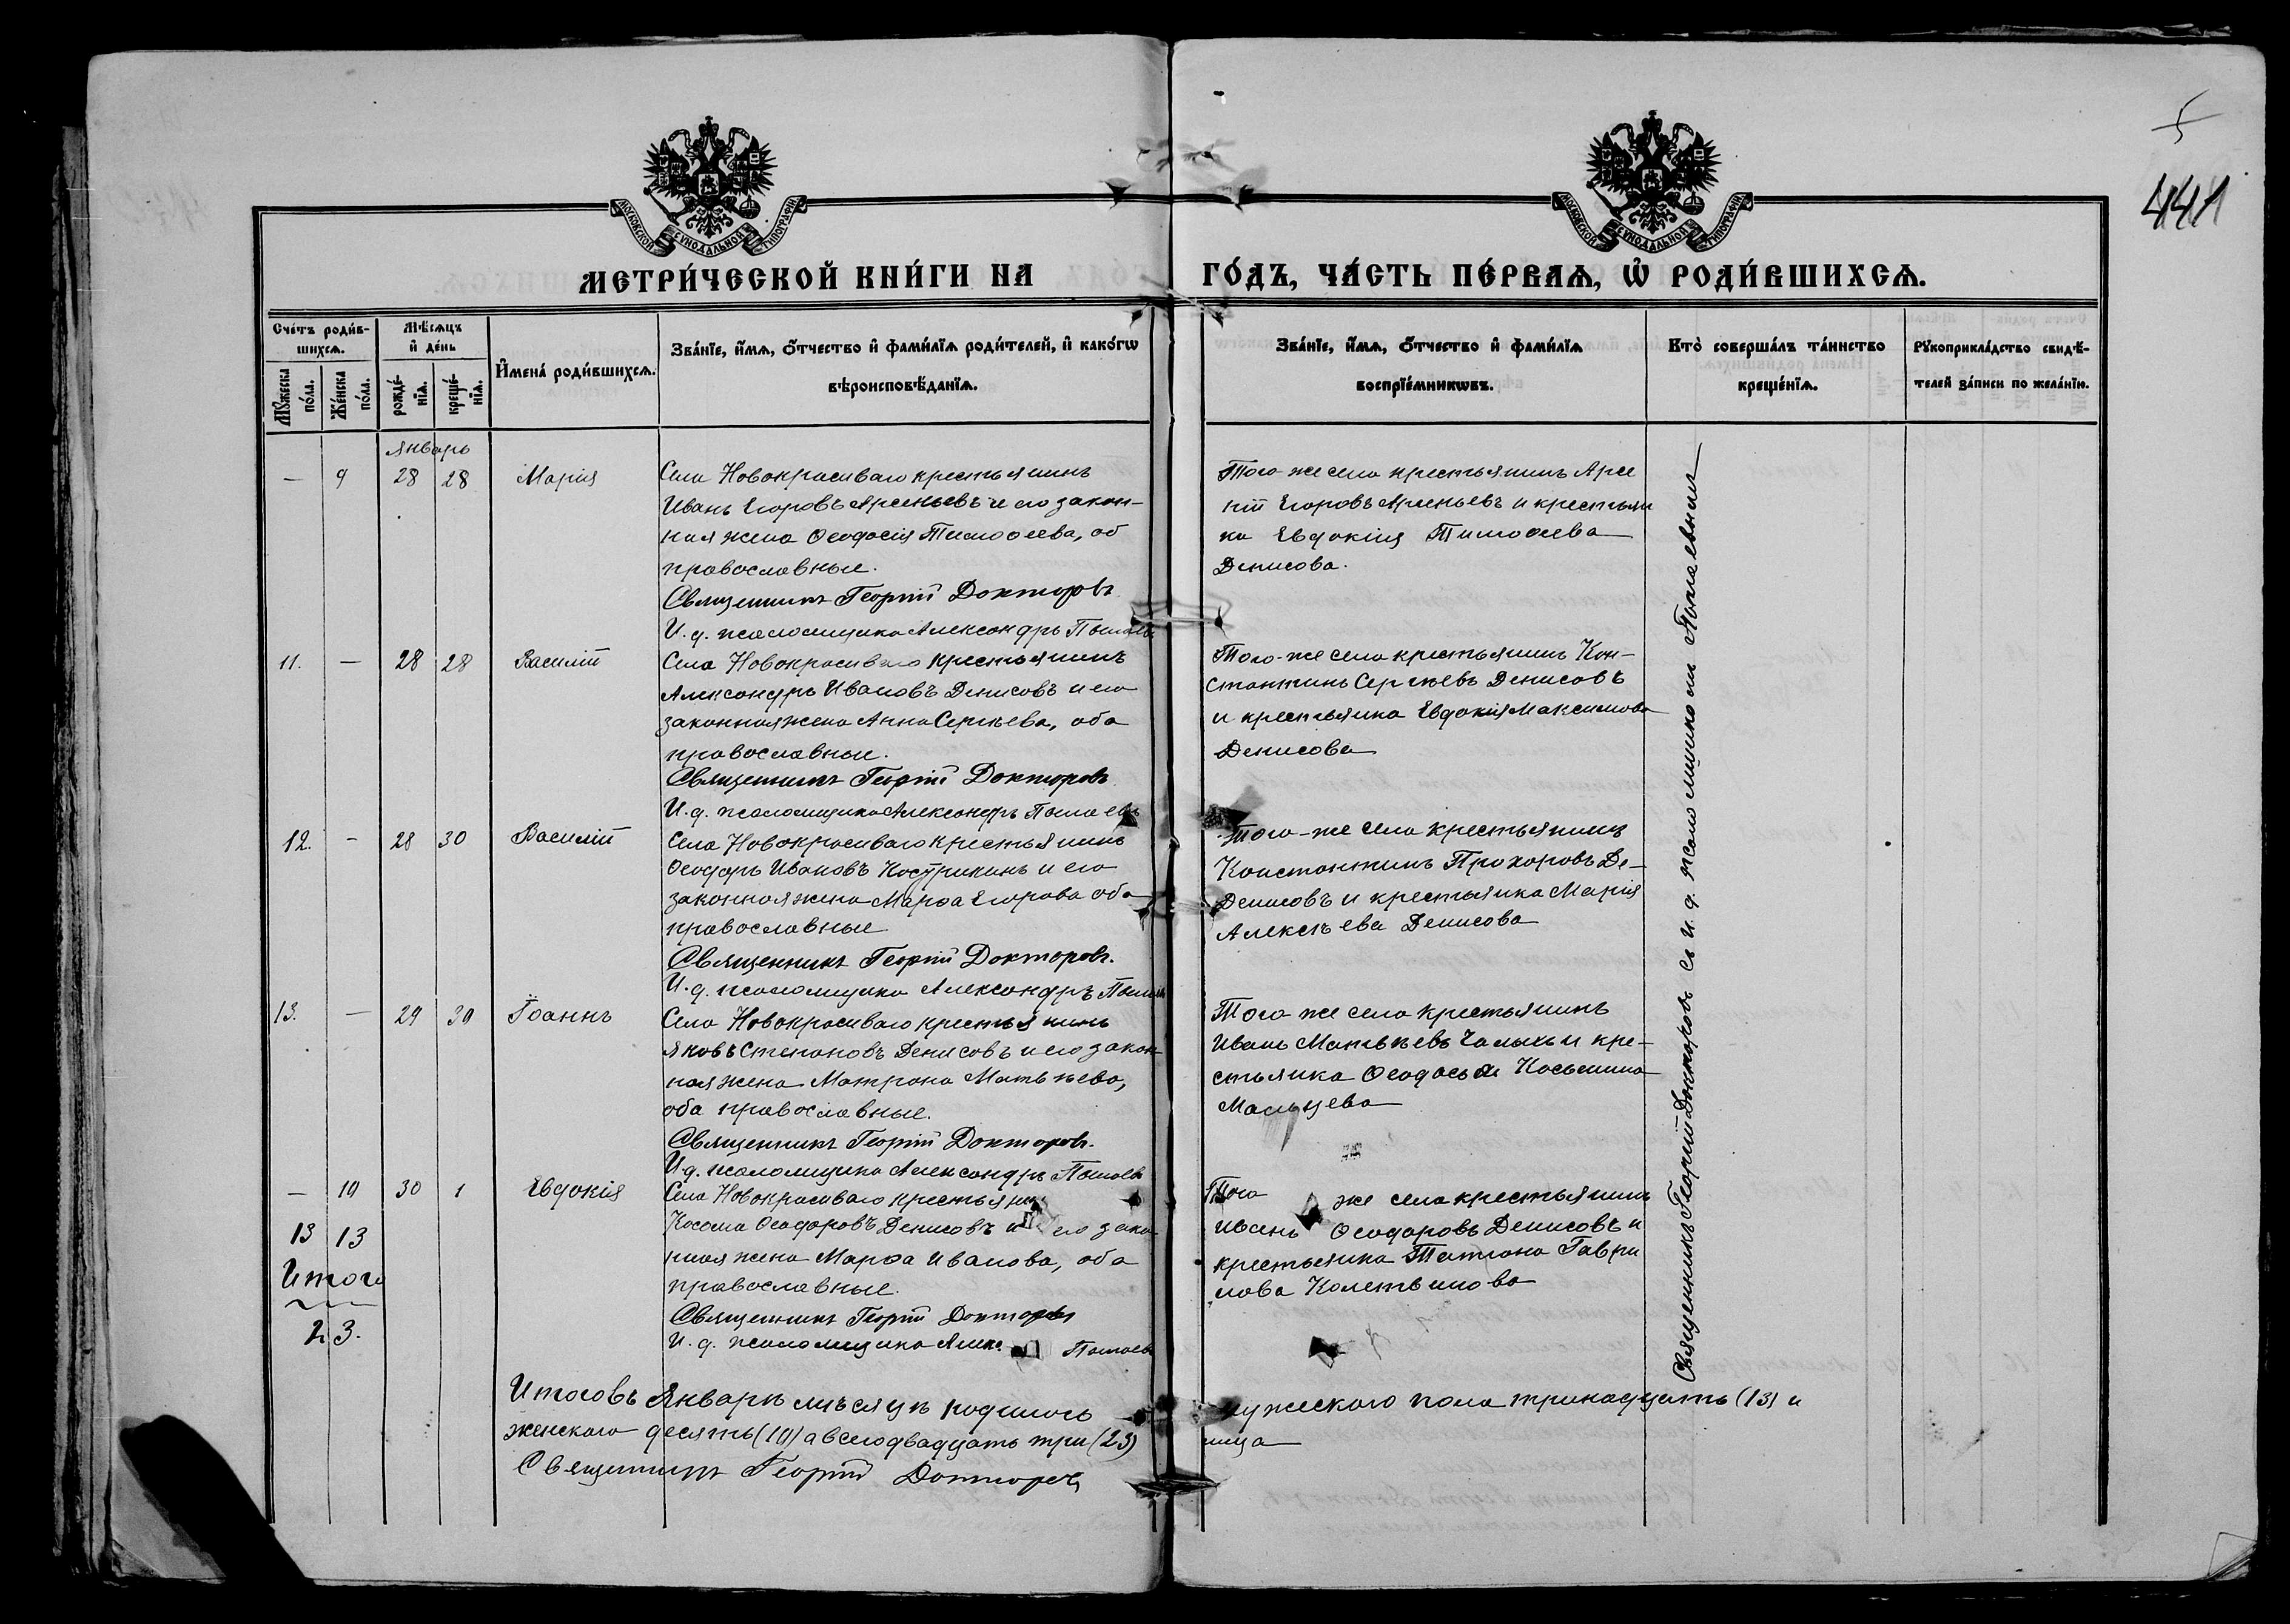 441
МОСКОВСКОЙ СУНОДАЛЬНОЙ ТИПОГРАФІИ
МОСКОВСКОЙ СУНОДАЛЬНОЙ ТИПОГРАФІИ
МЕТРИ́ЧЕСКОЙ КНИ́ГИ НА
ГО́ДЪ, ЧА́СТЬ ПЕ́РВАѦ, Ѡ҆ РОДИ́ВШИХСѦ.
Сче́тъ роди́в-
шихсѧ.
Мѣ́сѧцъ
и҆ де́нь
И҆мена́ роди́вшихсѧ.
Зва́нїе, и҆́мѧ, ѻ҆́тчество и҆ фами́лїѧ роди́телей, и҆ како́гѡ
вѣроисповѣ́данїѧ.
Мꙋ́жеска
по́ла.
Же́нска
по́ла.
рожде́-
нїѧ.
креще́-
нїѧ.
Зва́нїе, и҆́мѧ, ѻ҆́тчество и҆ фами́лїѧ
воспрїе́мникѡвъ.
Кто̀ соверша́лъ та́инство
креще́нїѧ.
Рꙋкоприкла́дство свидѣ́-
телей за́писи по жела́нїю.
Январь
— 9 28 28 Марія
Села Новокрасиваго крестьянинъ
Иванъ Егоровъ Арсеньевъ и его закон-
ная жена Ѳеодосія Тимоѳеева, об
православные.
Священникъ Георгій Докторовъ
И. д. псаломщика Александръ
Того-же села крестьянинъ Арсе
ній Егоровъ Арсеньевъ и крестьян
ка Евдокія Тимоѳеева
Денисова.
11. — 28 28 Василій
Села Новокрасиваго крестьянинъ
Александръ Ивановъ Денисовъ и его
законная жена Анна Сергѣева, оба
православные.
Священникъ Георгій Докторовъ
И. д. псаломщика Александръ
Того-же села крестьянинъ Кон-
стантинъ Сергѣевъ Денисовъ
и крестьянка Евдокія Максимова
Денисова
12. — 28 30 Василій
Села Новокрасиваго крестьянинъ
Ѳеодоръ Ивановъ Кострикинъ и его
законная жена Марѳа Егорова оба
православные
Священникъ Георгій Докторовъ.
И. д. псаломщика Александръ
Того-же села крестьянинъ
Константинъ Прохоровъ Де-
Денисовъ и крестьянка Марія
Алексѣева Денисова
13. — 29 30 Іоаннъ
Села Новокрасиваго крестьянинъ
Яковъ Степановъ Денисовъ и его закон-
ная жена Матрона Матвѣева,
оба православные.
Священникъ Георгій Докторовъ.
И. д. псаломщика Александръ
Того же села крестьянинъ
Иванъ Матвѣевъ и кре-
стьянка Ѳеодосья Косьмина
Мальцева
— 10 30 1 Евдокія
Села Новокрасиваго крестьянинъ
Косьма Ѳеодоровъ Денисовъ и его зако
нная жена Марѳа Иванова, оба
православные.
Священникъ Георгій Докторовъ
И. д. псаломщика
Того же села крестьянинъ
Иванъ Ѳеодоровъ Денисовъ и
крестьянка Татіана Гаври
лова
13 13
Итого
23.
Священникъ Георгій Докторовъ съ и. д. псаломщикомъ
Итого въ Январѣ мѣсяцѣ родилось мужескаго пола тринадцать (13) и
женскаго десять (10) а всего двадцать три (23) лица
Священникъ Георгій Докторовъ